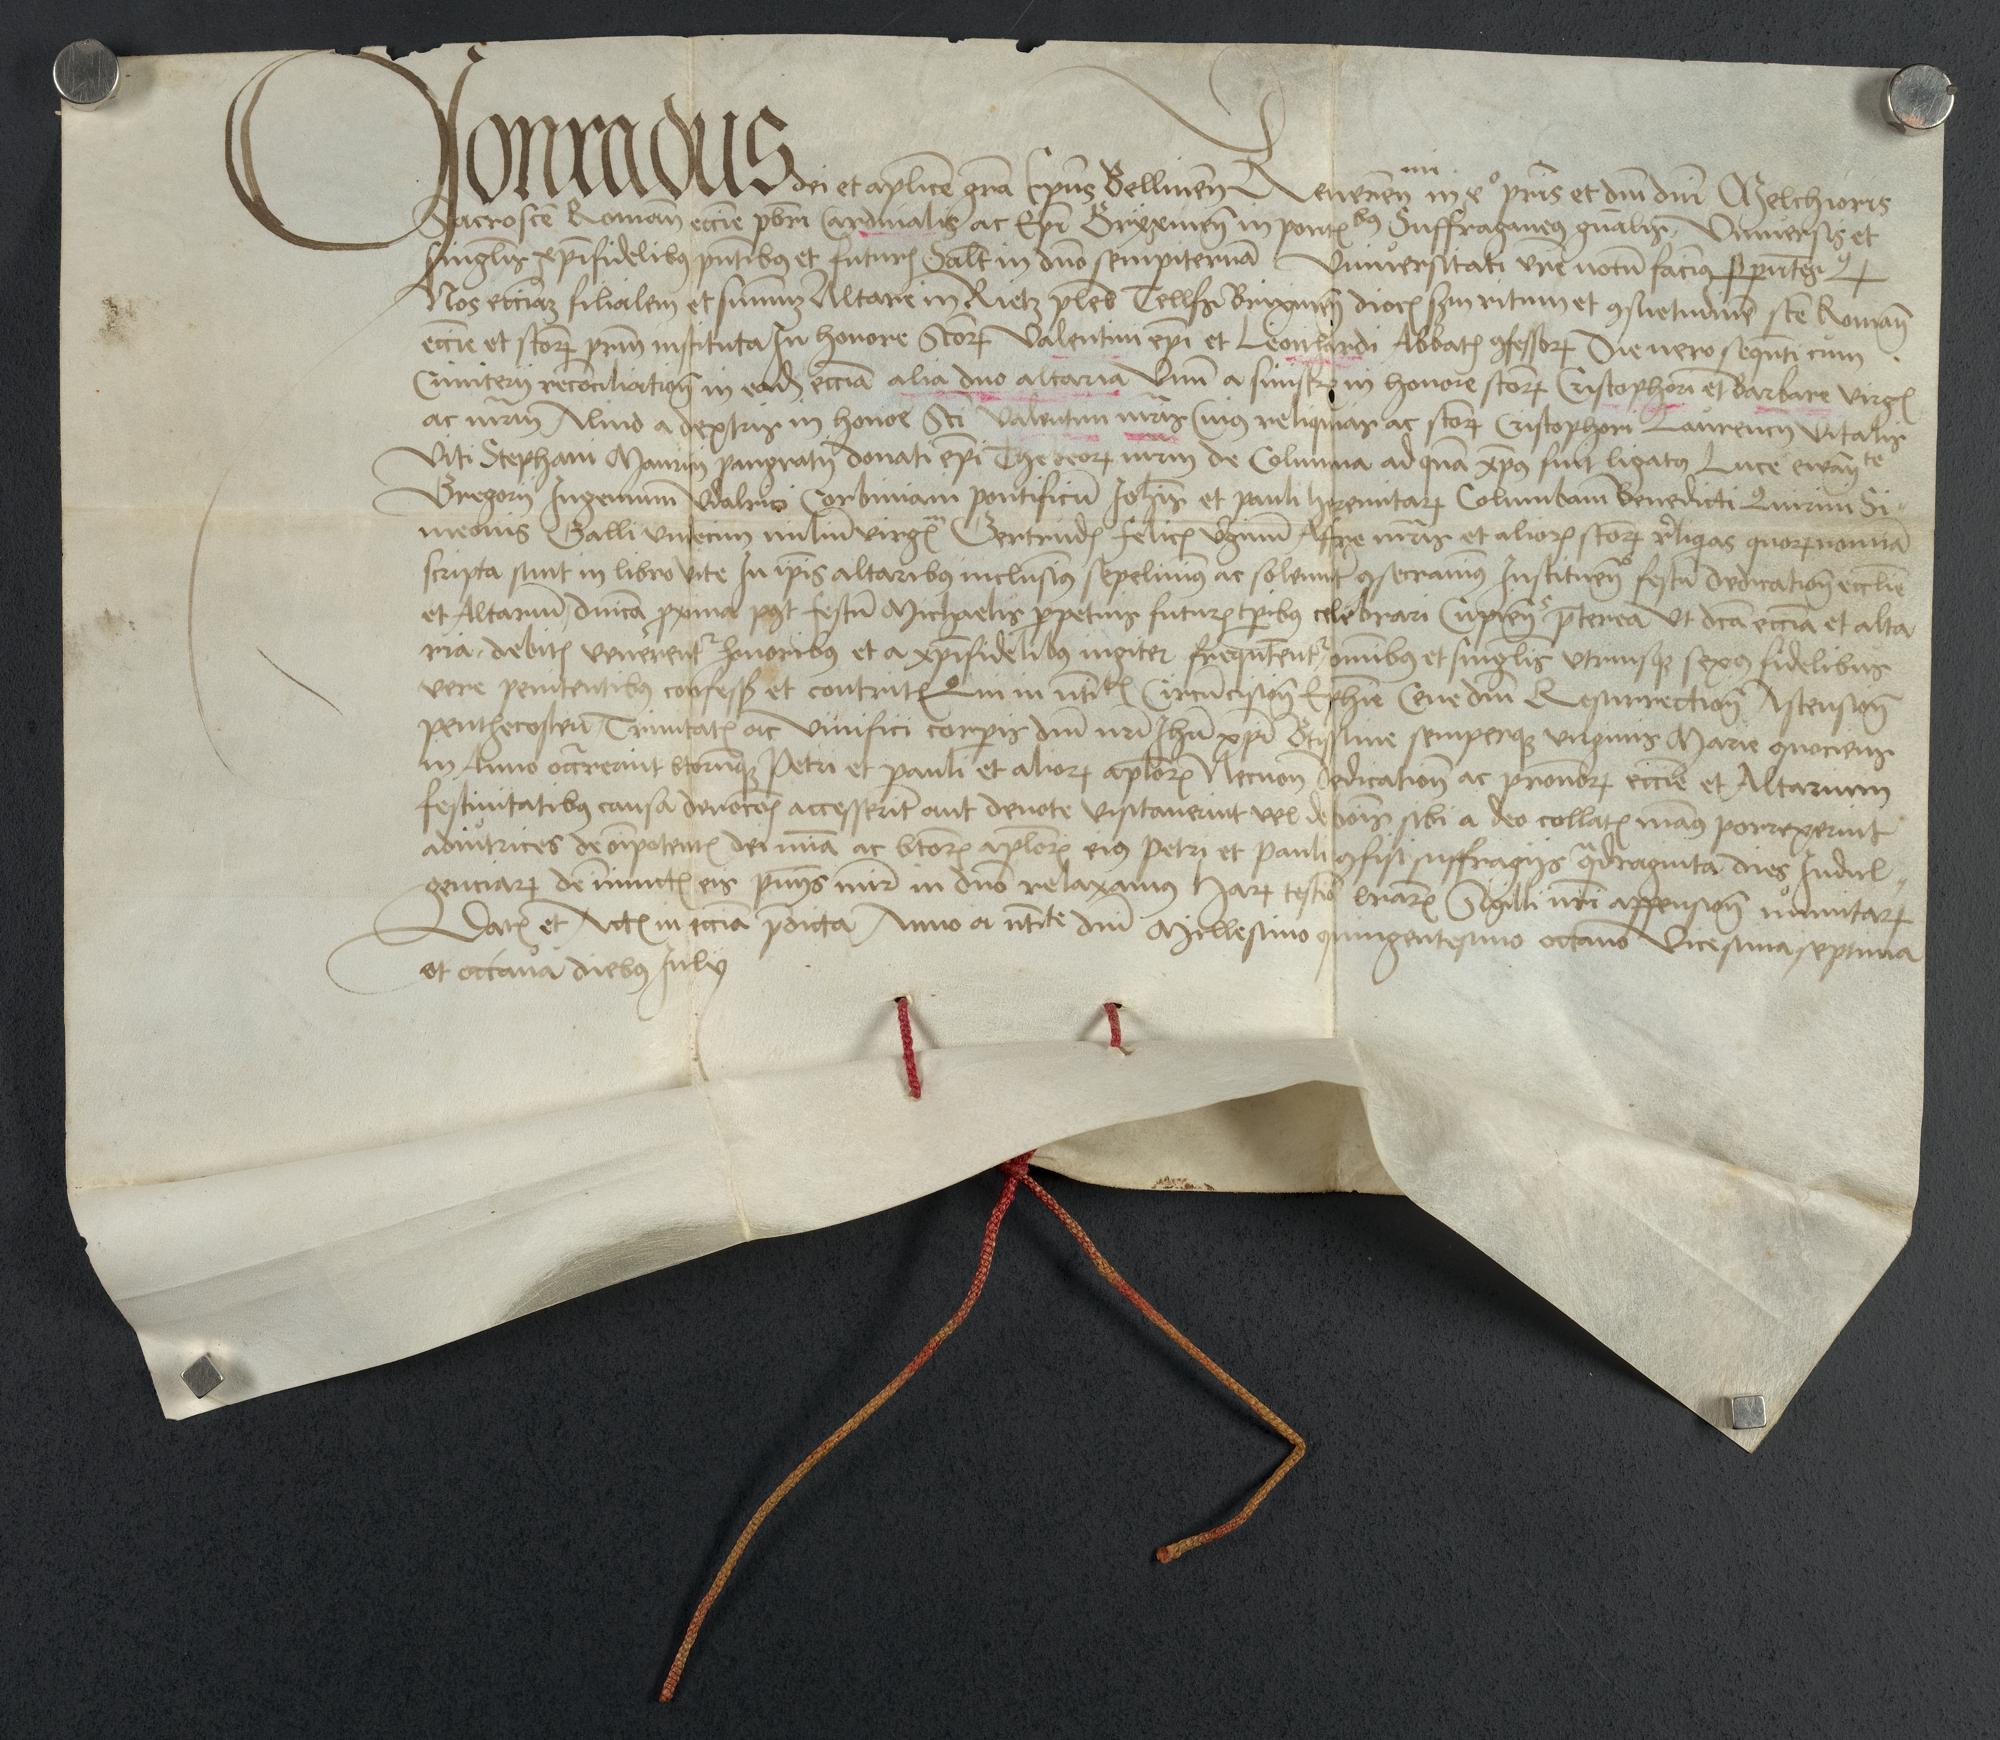 Conradus dei et aplice gra Epus Bellinen Reveren mi in xo pris et dni dni Melchioris
Sacrosce Roman eccie pbri Cardinalis ac Epi Brixinen in pontbus Suffraganeus gnalis Universis et
singulis xpifidelibus pntibus et futuris Salt in dno sempiternam Universitati vre notu facimus p pntes Qd
Nos ecciam filialem et summu Altare in Rietz pleb Tellfs Brixinen dioc scdm ritum et gsuetudine sce Roman
eccie et scor prm instituta In honore Scor Valentini epi et Leonhardi Abbatis gfessor Die vero sequnti cum
Cimiterii reconciliation in eade eccia alia duo altaria Unu a sinistr in honore scor Cristophori et Barbare virg
ac mrm Aliud a dextris in honoe Sci Valentini mris Cuius reliquias ac scor Cristophori Laurencii Vitalis
Viti Stephani Mauricii pangratii donati epi Thebeor mrm de Columna ad qua xpus fuit ligatus Luce ewangte
Gregorii Ingenuini Udalrici Corbiniani pontificu Johis et pauli heremitar Columbani Benedicti Quirini Si-
meonis Galli Undecim miliu virgm Gertrudis felicis virginum Affre mris et alior scor reliqias quor nomina
scripta sunt in libro vite In ipis altaribus inclusimus sepelivimus ac solemniter gsecravimus Instituen festu dedication ecclie
et Altarium dnica proxima post festu Michaelis perpetuis futuris tpibus celebrari Cupien preterea Ut dca eccia et alta
ria debitis venerent honoribus et a xpifidelibus iugiter frequntent omibus et singulis utriusque sexus fidelibus
vere penitentibus confess et contritis Qui in ntitis Circumcision Ephie Cene dni Resurrection Ascension
penthecosten Trinitatis ac Vivifici corporis dni nri Jhu xpi Btissime semperque virginis Marie quociens
in Anno occurrerint btorumque Petri et pauli et alior aplor Necnon dedication ac pronor eccie et Altarium
festivitatibus causa devocois accesserint aut devote visitaverint vel de bonis sibi a deo collatis manus porrexerint
adiutrices de oipotentis dei mia ac btor aplor eius Petri et Pauli gfisi suffragiis qudraginta dies Indul-
genciar de iniunctis eis pniis misr in dno relaxamus Har testio lriar Sigilli nri appension munitar
Datis et Actis in eccia pdicta Anno a ntite dni Millesimo quingentesimo octavo Vicesima septima
et octava diebus Julii